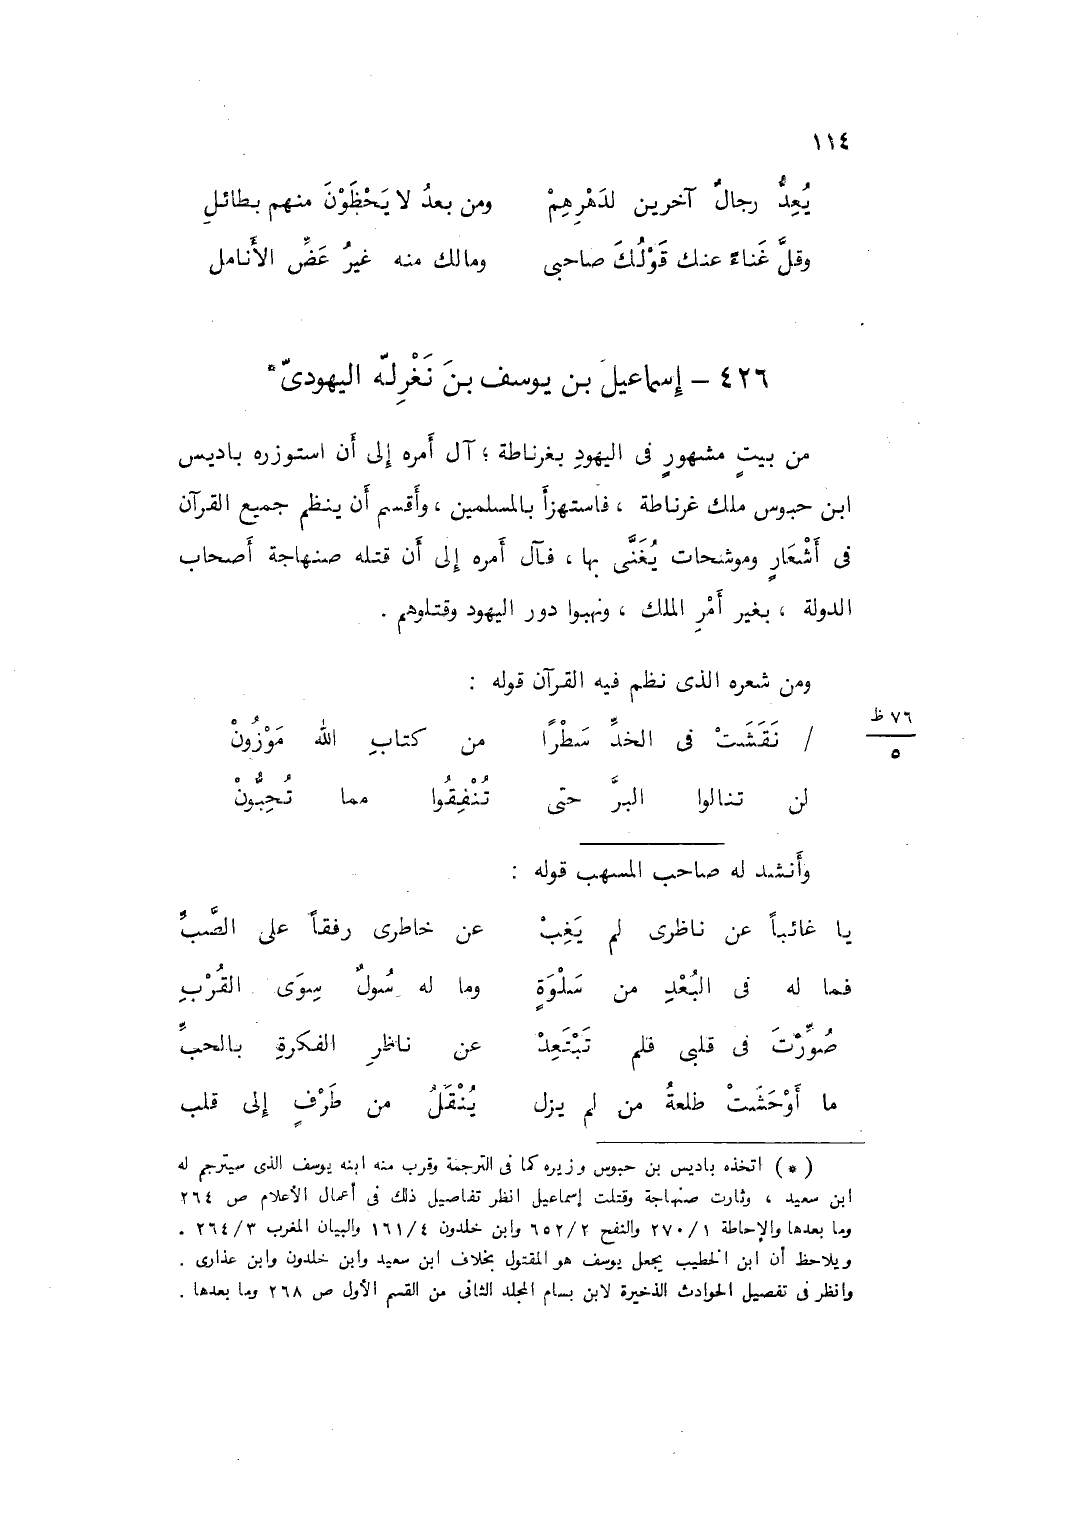 ١١٤
يُعِدُّ رجالٌ آخرين لدَهْرِهِمْ ومن بعدُ لا يَحْظَوْنَ منهم بطائلِ
وقلَّ غَناءً عنك قَوْلُكَ صاحبى ومالك منه غيرُ عَضِّ الأَنامل
٤٢٦ – إسماعيلَ بن يوسف بنَ نَغْرِلّه اليهودىّ*
من بيتٍ مشهورٍ فى اليهودِ بغرناطة ؛ آل أَمره إِلى أَن استوزره باديس
ابن حبوس ملك غرناطة ، فاستهزأَ بالمسلمين ، وأَقسم أَن ينظم جميع القرآن
فى أَشْعَارٍ وموشحات يُغَنَّى بها ، فآل أمره إِلى أَن قتله صنهاجة أَصحاب
الدولة ، بغير أَمْرِ الملك ، ونهبوا دور اليهود وقتلوهم .
ومن شعره الذى نظم فيه القرآن قوله :
٧٦ ظ
/ نَقَشَتْ فى الخدِّ سَطْرًا من كتابِ الله مَوْزُونْ
٥
لن تنالوا البرَّ حتى تُنْفِقُوا مما تُحِبُّونْ
وأَنشد له صاحب المسهب قوله :
يا غائباً عن ناظرى لم يَغِبْ عن خاطرى رفقاً على الصَّبِّ
فما له فى البُعْدِ من سَلْوَةٍ وما له سُولٌ سِوَى القُرْبِ
صُوِّرْتَ فى قلبى فلم تَبْتَعِدْ عن ناظرِ الفكرةِ بالحبِّ
ما أَوْحَشَتْ طلعةُ من لم يزل يُنْقَلُ من طَرْفٍ إِلى قلب
( * ) اتخذه باديس بن حبوس وزيره كما فى الترجمة وقرب منه ابنه يوسف الذى سيترجم له
ابن سعيد ، وثارت صنهاجة وقتلت إسماعيل انظر تفاصيل ذلك فى أعمال الأعلام ص ٢٦٤
وما بعدها والإحاطة ٢٧٠/١ والنفح ٦٥٢/٢ وابن خلدون ١٦١/٤ والبيان المغرب ٢٦٤/٣ .
ويلاحظ أن ابن الخطيب يجعل يوسف هو المقتول بخلاف ابن سعيد وابن خلدون وابن عذارى .
وانظر فى تفصيل الحوادث الذخيرة لابن بسام المجلد الثانى من القسم الأول ص ٢٦٨ وما بعدها .